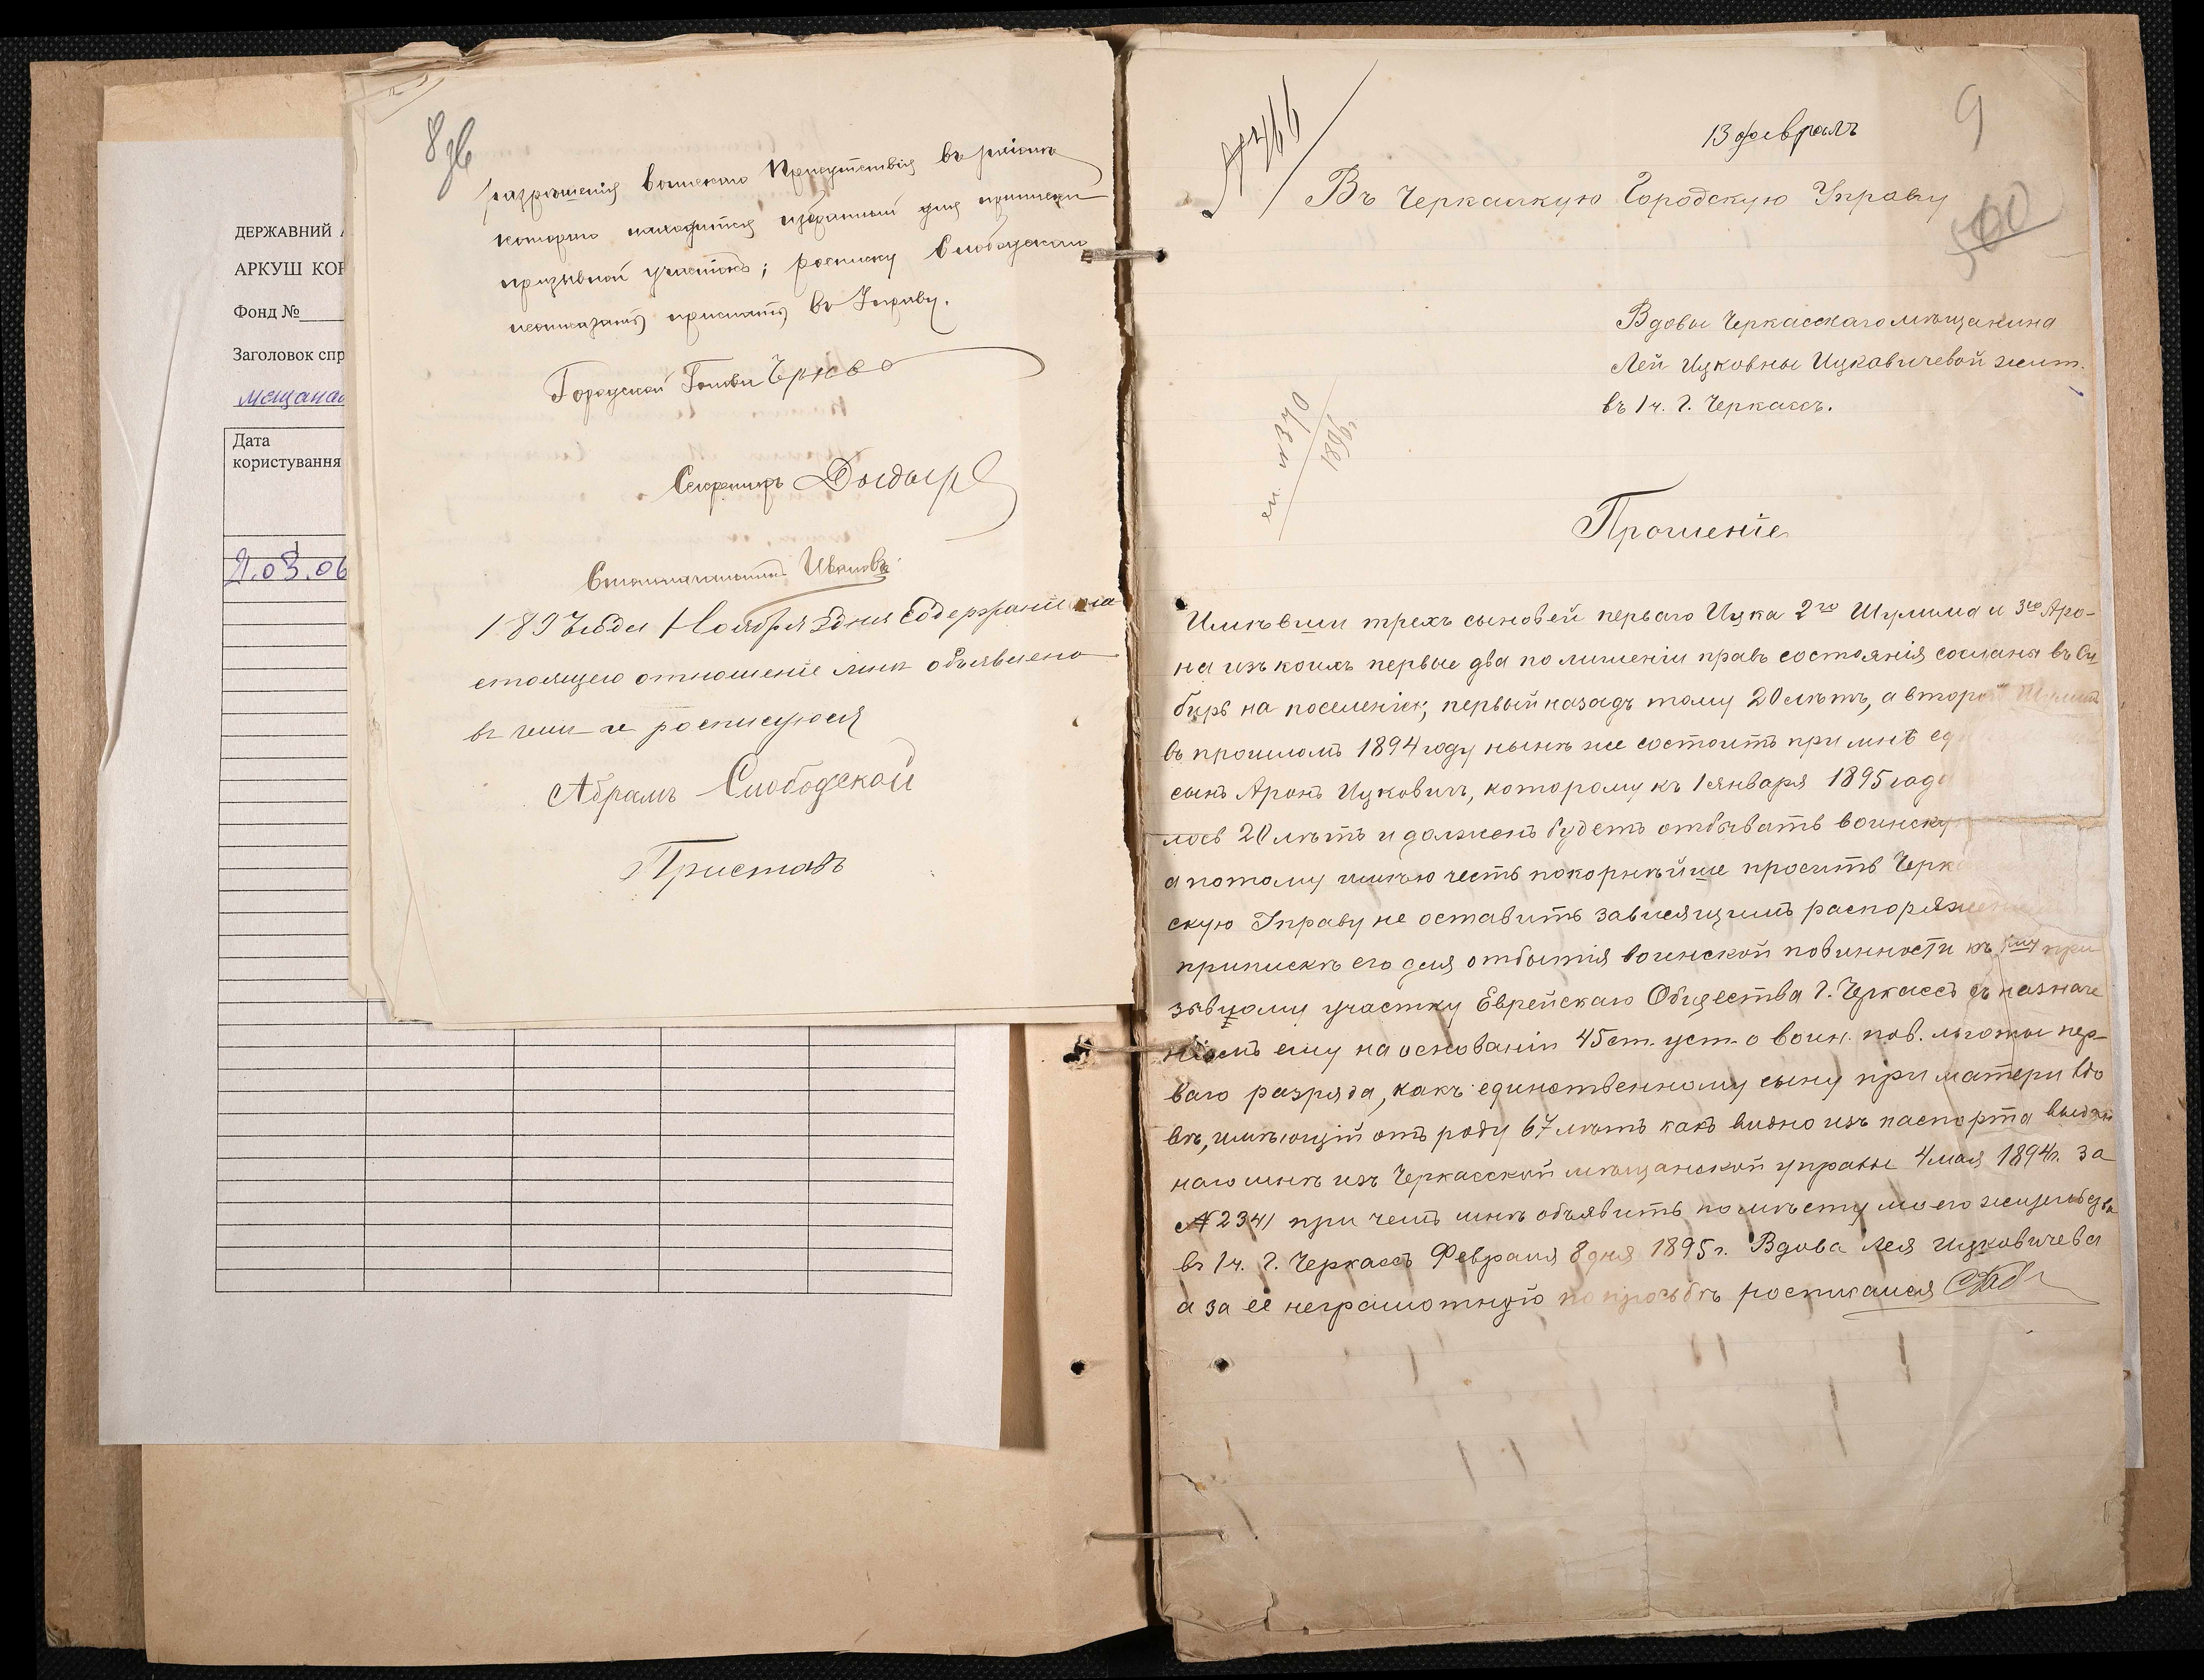 ДЕРЖАВНИЙ
АРКУШ КОР
Фонд №
Заголовок спр
мещанам
Дата
користування
1
2.03.06
8 зв
разрѣшенія воинскаго Присутствія въ раіонѣ
котораго находится избранный для приписки
призывной участокъ; росписку Слободскаго
прислать въ Управу.
Городской Голова
Секретарь
Столоначальникъ Ивановъ
189 года Ноября дня Содержаніе на
стоящего отношеніе мнѣ объявлено
в чем и росписуюся
Абрамъ Слободской
Приставъ
9
№ 466
13 февраль
Въ Черкасскую Городскую Управу
500
Вдовы Черкасскаго мѣщанина
Леи Ицковны Ицкавичевой жит.
въ 1 ч. г. Черкассъ.
№ 370
1896
Прошеніе
Имѣвши трехъ сыновей перваго Ицка 2го Шулима и 3го Аро-
на изъ коихъ первые два по лишеніи правъ состоянія сосланы въ Си
бирь на поселеніе, первый назадъ тому 20 лѣтъ, а второй Шулим
въ прошломъ 1894 году нынѣ же состоитъ при мнѣ ед
сынъ Аронъ Ицковичъ, которому къ 1 января 1895 года
лось 20 лѣтъ и долженъ будетъ отбывать воинскую
а потому имѣю честь покорнѣйше просить Черка
скую Управу не оставить зависящимъ распоряжен
припискѣ его для отбытія воинской повинности къ 1му при
зывному участку Еврейскаго Общества г. Черкассъ съ назначе
ніемъ ему на основаніи 45 ст. уст. о воин. пов. льготы пер-
ваго разряда, какъ единственному сыну при матери вдо
вѣ, имѣющій отъ роду 67 лѣтъ какъ видно изъ паспорта выдан
наго мнѣ изъ Черкасской мѣщанской управы 4 мая 1894 г. за
№ 2341 при чемъ мнѣ объявить по мѣсту моего жительства
въ 1 ч. г. Черкассъ Февраля 8 дня 1895 г. Вдова Лея Ицковичева
а за её неграмотную по просьбѣ росписался